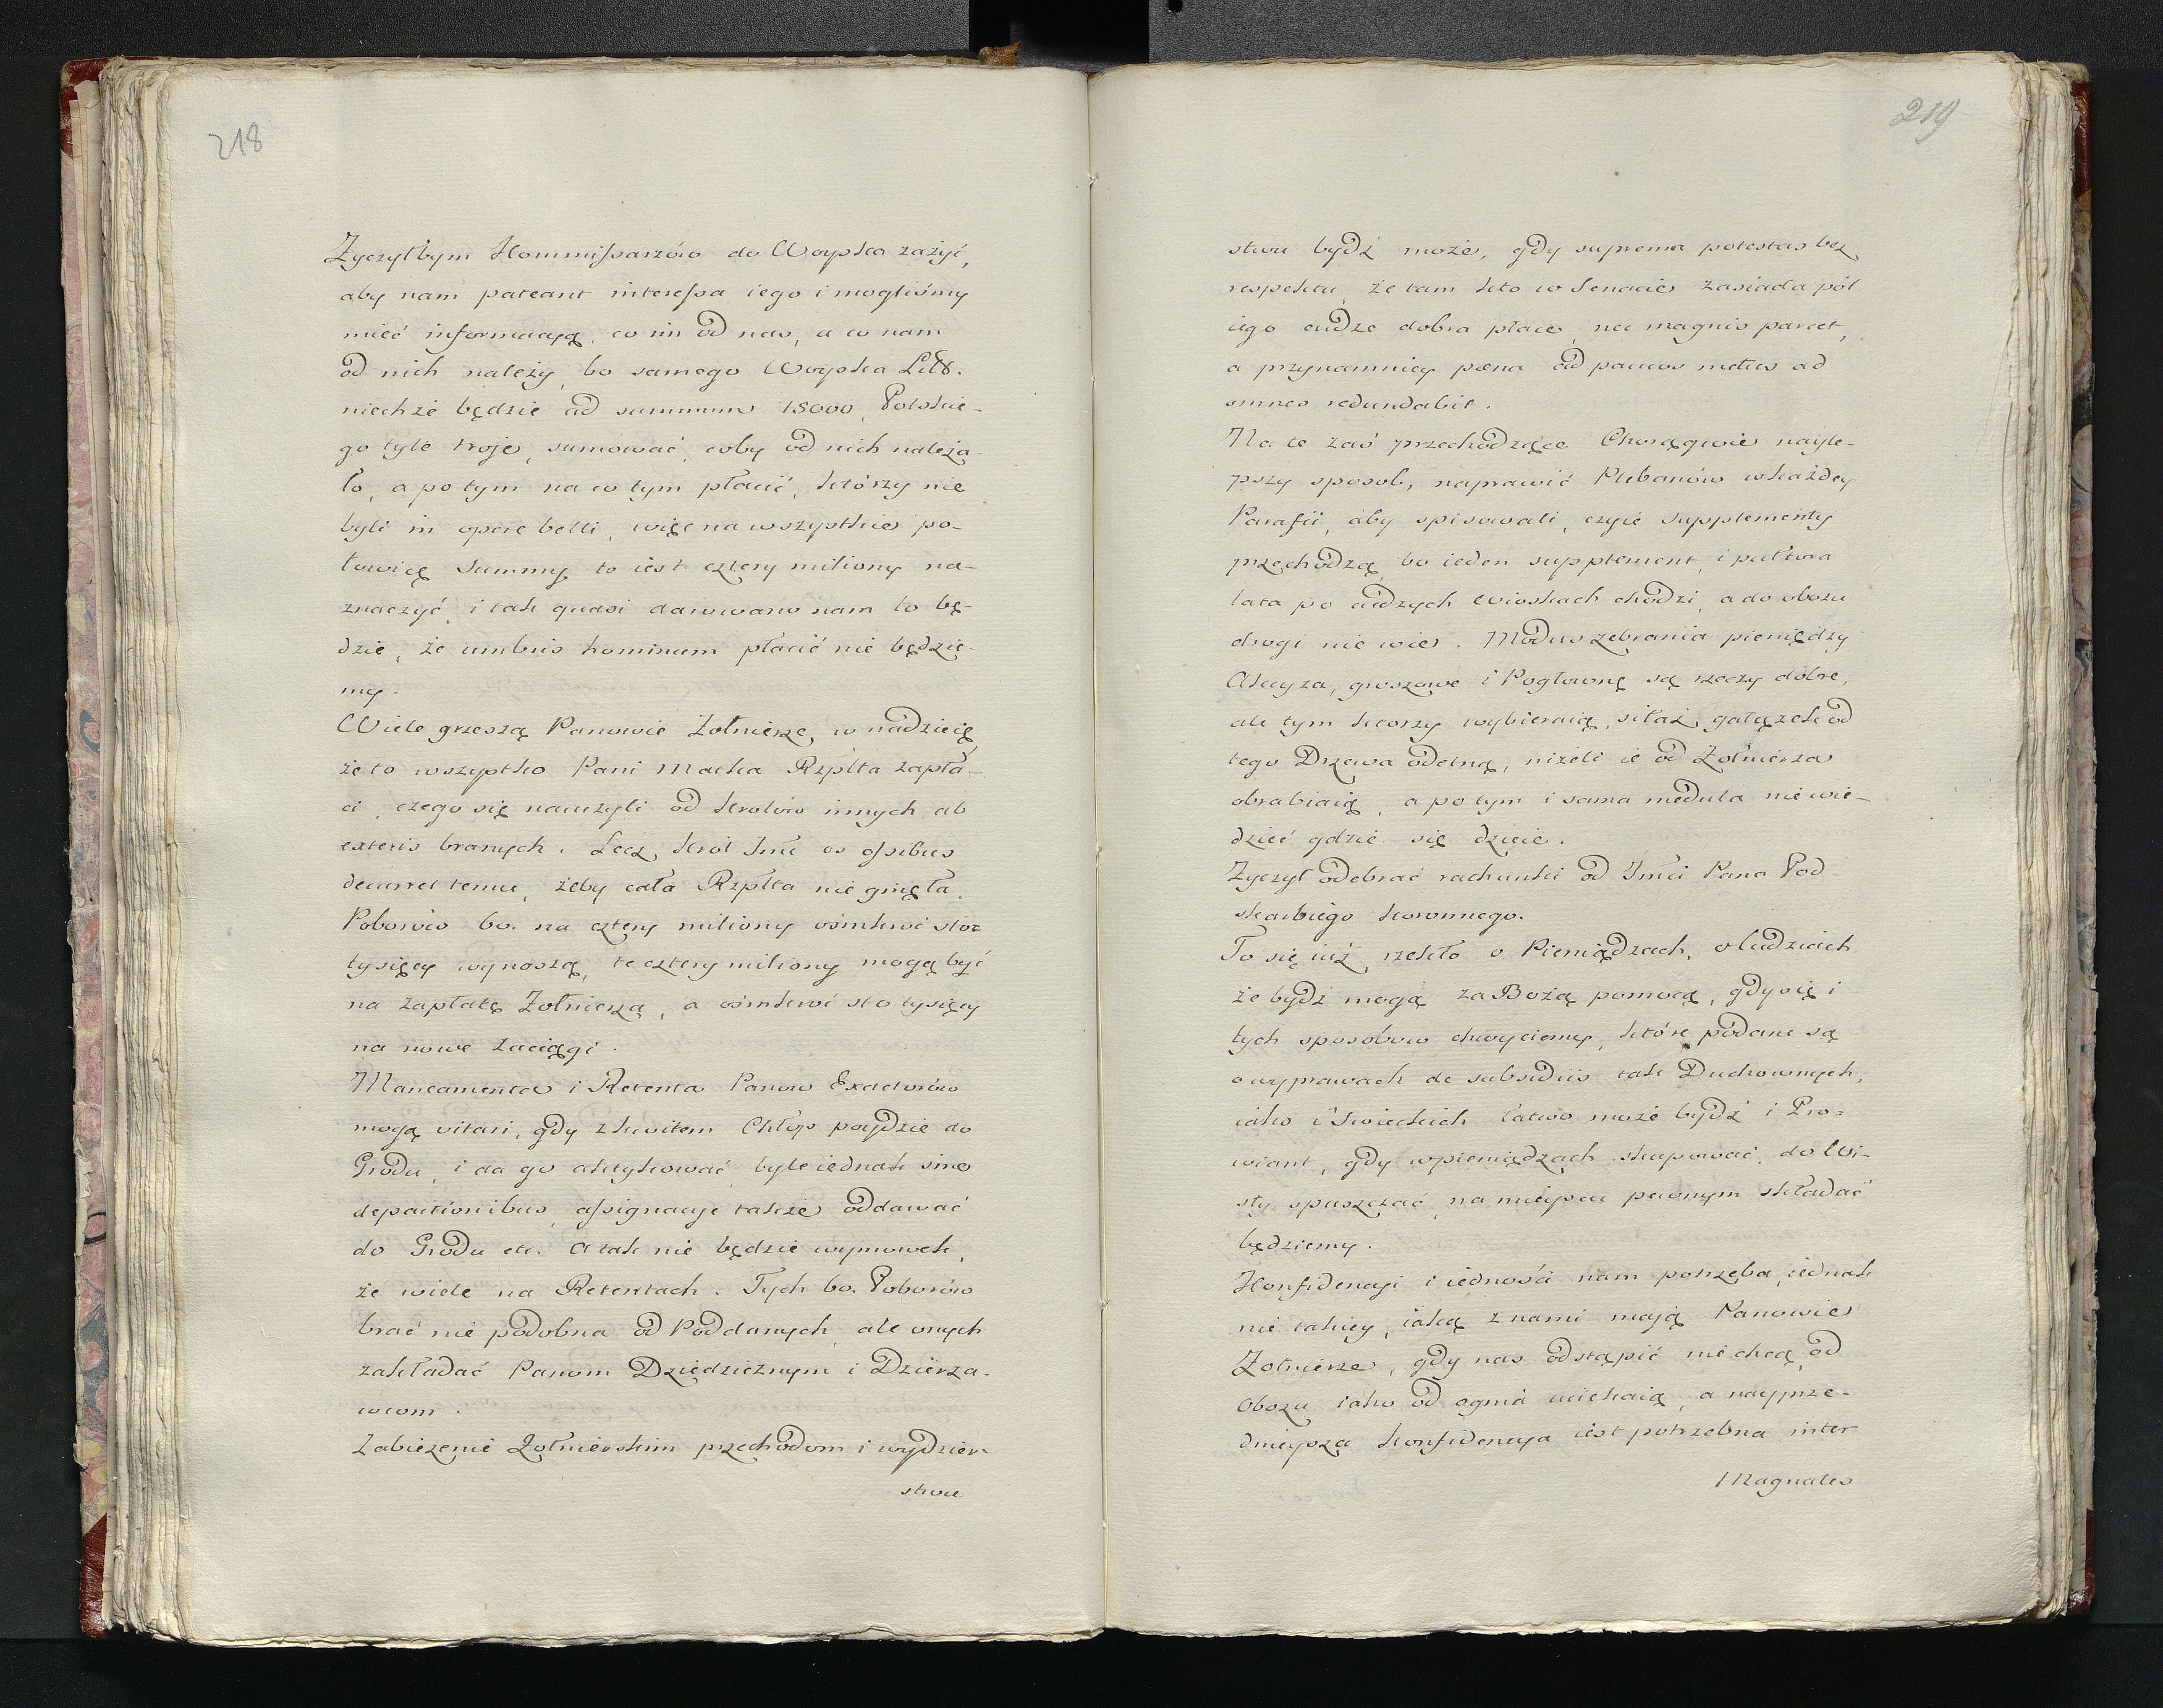 218
Zyczyłbym Kommissarzów do Woyska zażyć,
aby nam pateant interessa iego i mogliśmy
mieć informacyą, co im od nas, a co nam
od nich należy, bo samego Woyska Litt.
niechże będzie ad summum 18000, Polskie-
go tyle troje, sumować, coby od nich należa-
ło, a po tym na co tym płacić, którzy nie
byli in opere belli, więc na wszystkie po-
łowicę Summy to iest cztery miliony na-
znaczyć, i tak quasi darowano nam to bę-
dzie, że umbris hominum płacić nie będzie-
my.
Wiele grzeszą Panowie Żołnierze, w nadzieię
że to wszystko Pani Matka Rzplta zapła-
ci, czego się nauczyli od Krolów innych ab
exteris branych. Lecz, Krol Jmć os ossibus
decurret temu, żeby cała Rzplta nie ginęła.
Poborów bo. na cztery miliony ośmkroć sto-
tysięcy wynoszą, te cztery miliony mogą być
na zapłatę Żołnierzą, a ośmkroć sto tysięcy
na nowe zaciągi.
Mancamenta i Retenta Panow Exactorów
mogą vitari, gdy z kwitem Chłop poydzie do
Grodu, i da go aktykować, byle iednak sine
depactionibus, assignacye także oddawać
do Grodu etc. A tak nie będzie wymowek,
że wiele na Retentach. Tych bo. Poborów
brać nie podobna od Poddanych, ale onych
zakładać Panom Dziedzicznym i Dzierża-
wcom.
Zabieżenie Żołnierskim przechodom i wydzier-
stwu
219
stwu bydź może, gdy suprema potestas bez
respektu, że tam kto w Senacie zasiada pół
iego cudze dobra płace, nec magnis parcet,
a przynamniey pœna ad paucos metus ad
omnes redundabit.
Na te zaś przechodzące Chorągwie nayle-
pszy sposob, naprawić Plebanów wkażdey
Parafii, aby spisowali, czyie supplementy
przechodzą, bo ieden supplement, i pułtora
lata po cudzych wioskach chodzi, a do obozu
drogi nie wie. Modus zebrania pieniędzy
Akcyza, groszowe i Pogłowne są rzeczy dobre,
ale tym ktorzy wybieraią, siłaż gałązek od
tego Drzewa odetną, niżeli ie od Żołnierza
obrabiaią, a po tym i sama medulla nie wie-
dzieć gdzie się dzieie.
Zyczył odebrać rachunki od Jmci Pana Pod-
skarbiego koronnego.
To się iuż, rzekło o Pieniądzach, o ludziach
że bydź mogą za Bożą pomocą, gdy się i
tych sposobow chwyciemy, które podane są
o wyprawach de subsidiis tak Duchownych,
iako i Swieckich łatwo może bydź i Pro-
wiant, gdy wpieniądzach skupować, do Wi-
sły spuszczać, na mieyscu pewnym składać
będziemy.
Konfidencyi i iedności nam potrzeba, iednak
nie takiey, iaką z nami mają Panowie
Żołnierze, gdy nas odstąpić nie chcą, od
Obozu iako od ognia uciekaią, a nayprze-
dnieysza konfidencya iest potrzebna inter
Magnates